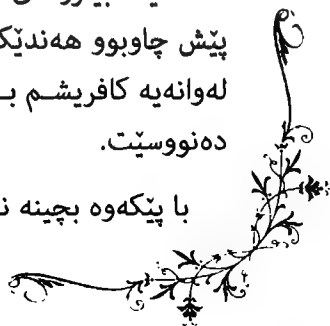 پێش چاوبوو هەندێک
لەوانەیە کافریشم بـ
دەنووسێت.
با پێکەوە بچینە